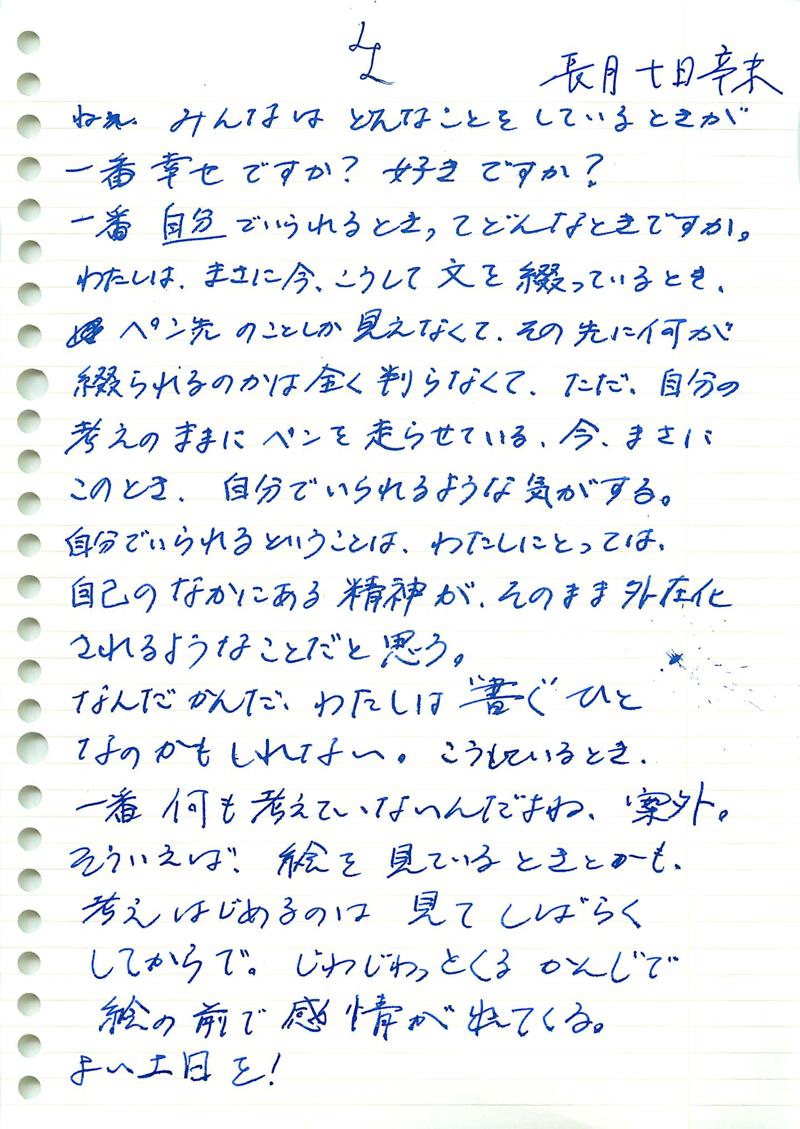 長月七日辛未
ねぇ、みんなはどんなことをしているときが
一番幸せですか？好きですか？
一番自分でいられるときってどんなときですか。
わたしは、まさに今、こうして文を綴っているとき、
ペン先のことしか見えなくて、その先に何が
綴られるのかは全く判らなくて、ただ、自分の
考えのままにペンを走らせている、今、まさに
このとき、自分でいられるような気がする。
自分でいられるということは、わたしにとっては、
自己のなかにある精神が、そのまま外在化
されるようなことだと思う。
なんだかんだ、わたしは“書く”ひと
なのかもしれない。こうしているとき、
一番何も考えていないんだよね、案外。
そういえば、絵を見ているときとかも、
考えはじめるのは見てしばらく
してからで。じわじわっとくるかんじで
絵の前で感情がてくる。
よい土日を！